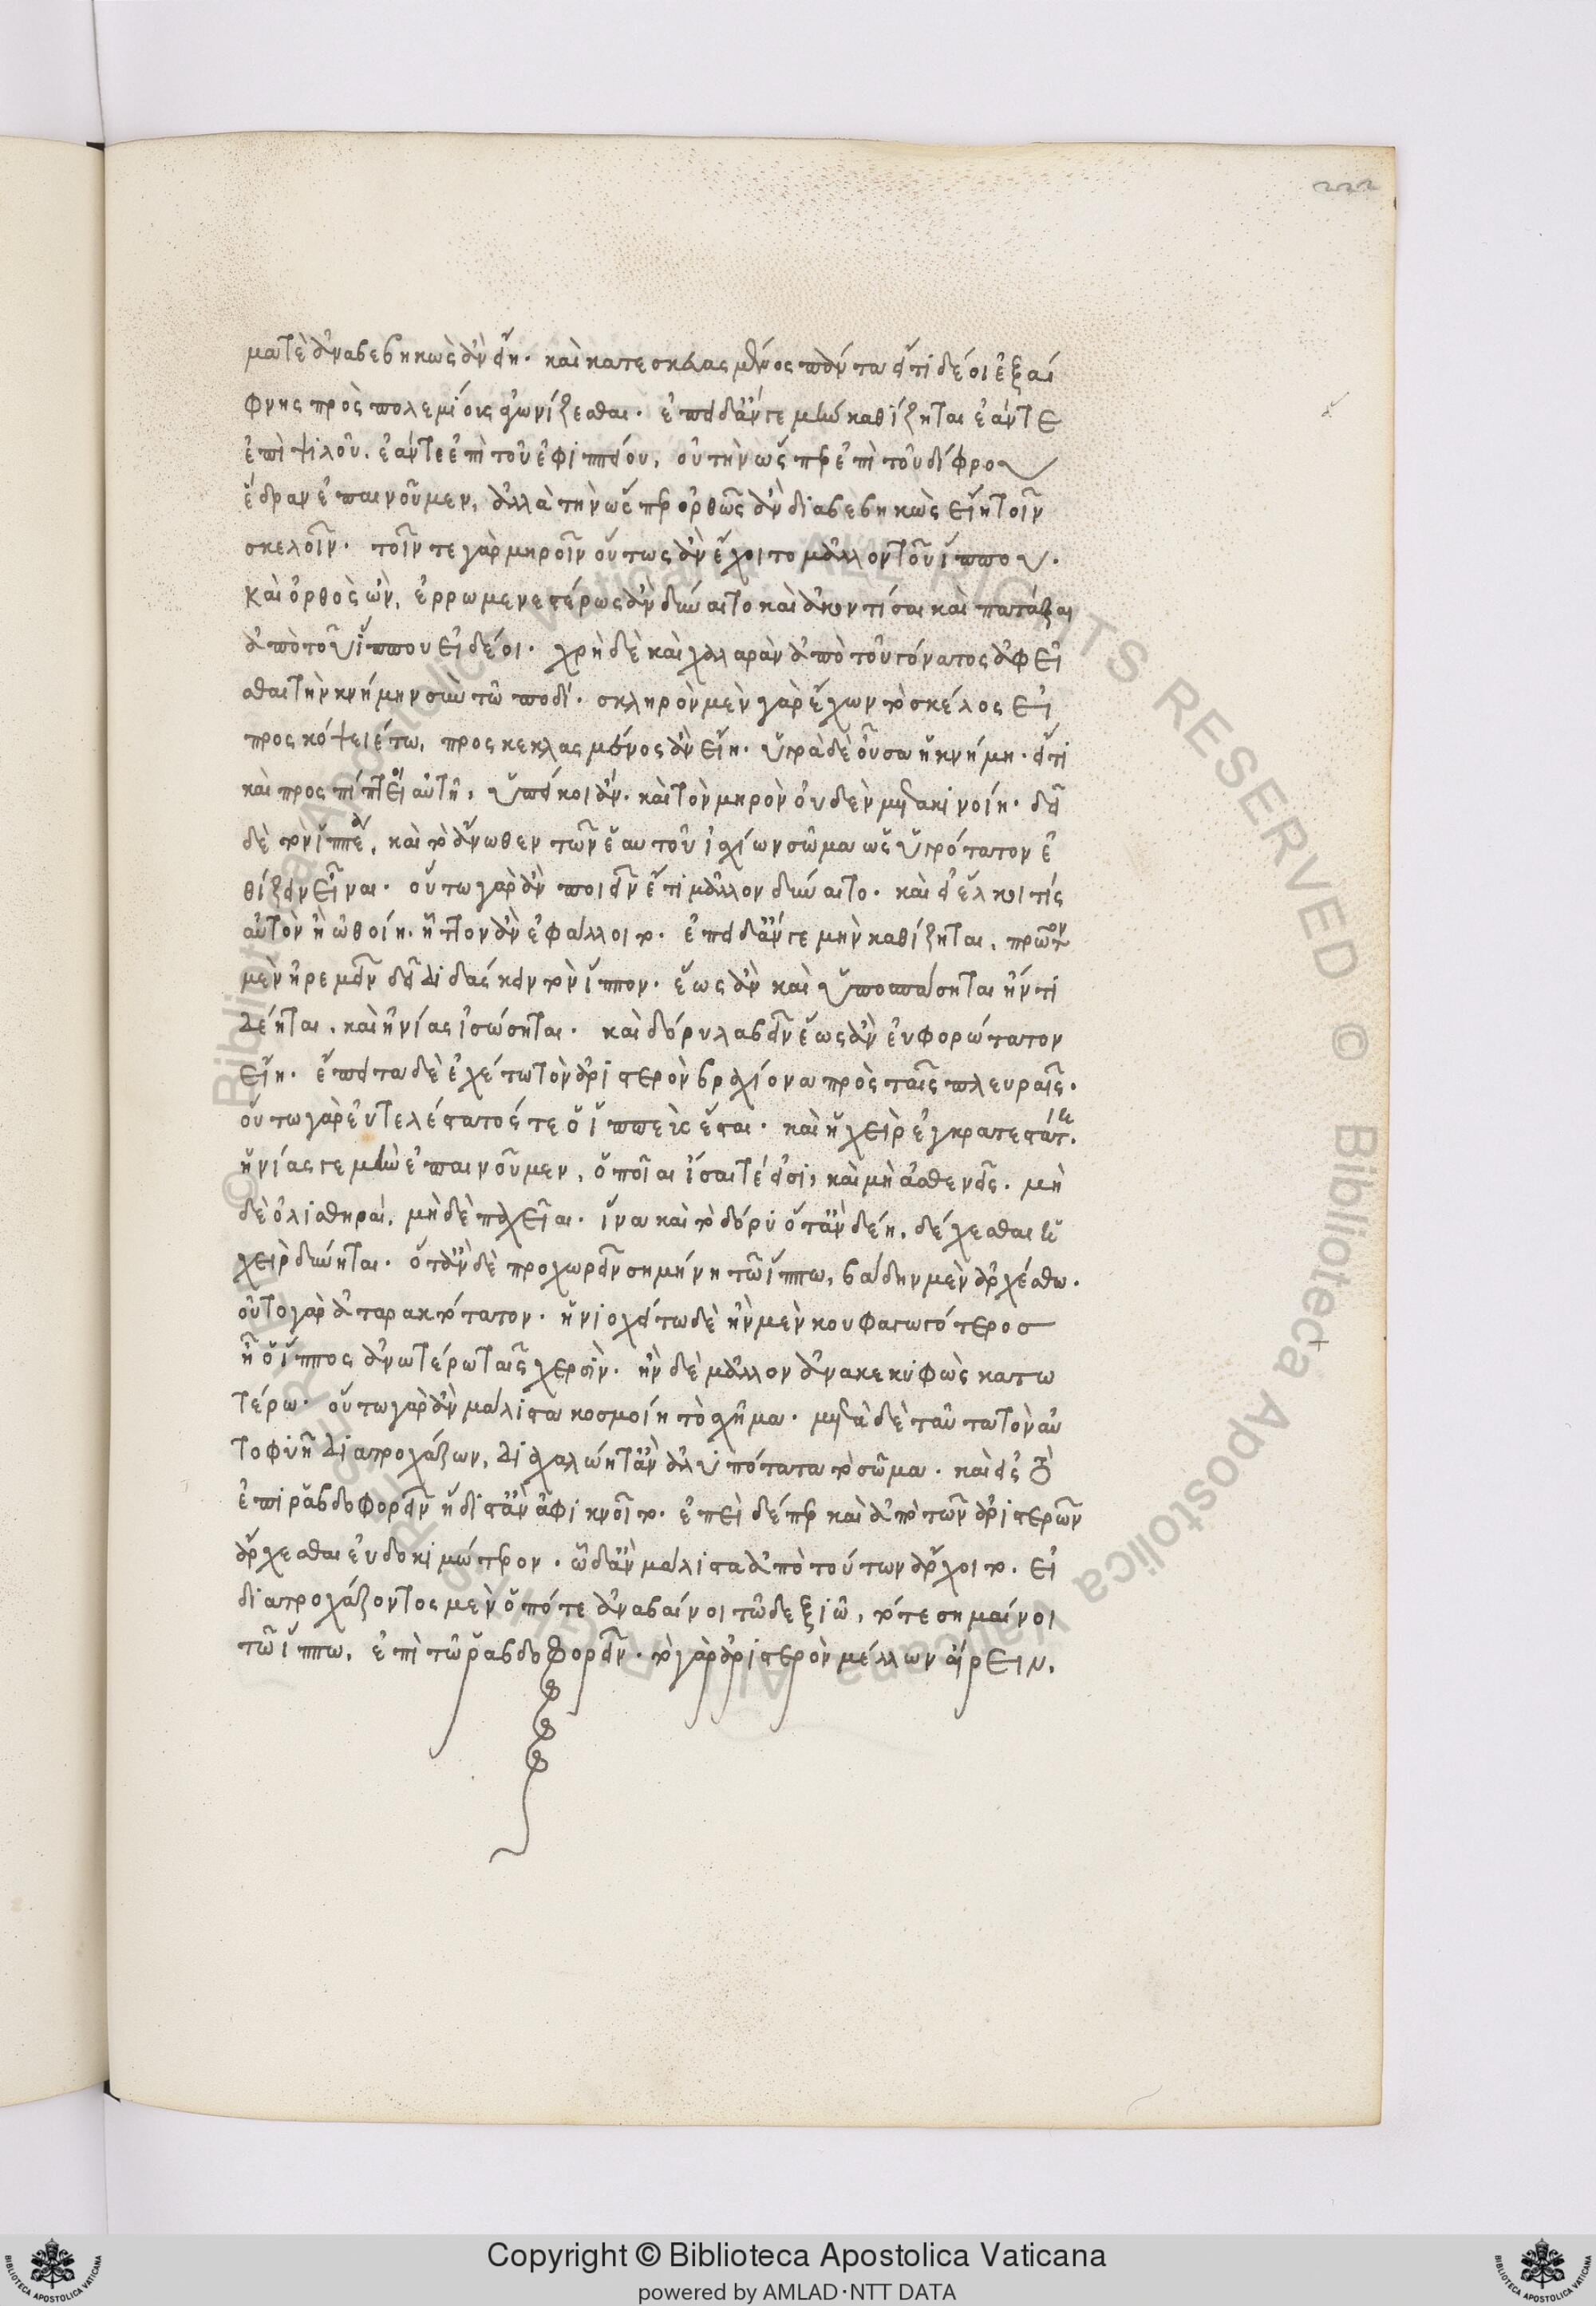 222
ματι ἀναβεβηκὼς ἂν εἴη. καὶ κατεσκευασμένος πάντα εἴ τι δέοι ἐξαί
φνης πρὸς πολεμίους ἀγωνίζεσθαι. ἐπειδάν γε μὴν καθίζηται ἐάν τε
ἐπὶ ψιλοῦ. ἐάν τε ἐπὶ τοῦ ἐφιππείου, οὐ τὴν ὥσπερ ἐπὶ τοῦ δίφρου
ἕδραν ἐπαινοῦμεν, ἀλλὰ τὴν ὥσπερ ὀρθὸς ἂν διαβεβηκὼς εἴη τοῖν
σκελοῖν. τοῖν τε γὰρ μηροῖν οὕτως ἂν ἔχοιτο μᾶλλον τοῦ ἵππου.
καὶ ὀρθὸς ὢν, ἐρρωμενεστέρως ἂν δύναιτο καὶ ἀκοντίσαι καὶ πατάξαι
ἀπὸ τοῦ ἵππου εἰ δέοι. χρὴ δὲ καὶ χαλαρὰν ἀπὸ τοῦ γόνατος ἀφεῖ
σθαι τὴν κνήμην σὺν τῷ ποδί. σκληρὸν μὲν γὰρ ἔχων τὸ σκέλος εἰ
προςκόψειέ τω, προςκεκλασμένος ἂν εἴη. ὑγρὰ δὲ οὖσα ἡ κνήμη. εἴ τι
καὶ προςπίπτοι αὐτῇ, ὑπείκοι ἄν. καὶ τὸν μηρὸν οὐδὲν μετακινοίη. δεῖ
δὲ τὸν ἱππέα, καὶ τὸ ἄνωθεν τῶν ἑαυτοῦ ἰσχίων σῶμα ὡς ὑγρότατον ἐ
θίζειν εἶναι. οὕτω γὰρ ἂν ποιεῖν ἔτι μᾶλλον δύναιτο. καὶ εἰ ἕλκοι τίς
αὐτὸν ἢ ὠθοίη. ἧττον ἂν ἐσφάλλοιτο. ἐπειδάν γε μὴν καθίζηται, πρῶτον
μὲν ἠρεμεῖν δεῖ διδάσκειν τὸν ἵππον. ἕως ἂν καὶ ὑποσπάσηται ἤν τι
δέηται, καὶ ἡνίας ἰσώσηται. καὶ δόρυ λαβεῖν ἕως ἂν εὐφορώτατον
εἴη. ἔπειτα δὲ ἐχέτω τὸν ἀριστερὸν βραχίονα πρὸς ταῖς πλευραῖς.
οὕτω γὰρ εὐτελέστατός τε ὁ ἱππεὺς ἔσται. καὶ ἡ χεὶρ ἐγκρατεστάτη.
ἡνίας γε μὴν ἐπαινοῦμεν, ὁποῖαι ἴσαι τέ εἰσι, καὶ μὴ ἀσθενεῖς. μὴ
δὲ ὀλισθηραί, μὴ δὲ παχεῖαι. ἵνα καὶ τὸ δόρυ ὅταν δέῃ, δέχεσθαι ἡ
χεὶρ δύνηται. ὅταν δὲ προχωρεῖν σημήνῃ τῷ ἵππω, βάδην μὲν ἀρχέσθω.
οὗτο γὰρ ἀταρακτότατον. ἡνιοχείτω δὲ ἢν μὲν κουφαγωγότερος
ᾖ ὁ ἵππος ἀνωτέρω ταῖς χερσὶν. ἢν δὲ μᾶλλον ἀνακεκυφὼς κατω
τέρω. οὕτω γὰρ ἂν μάλιστα κοσμοίη τὸ σχῆμα. μετὰ δὲ ταῦτα τὸν αὐ
τοφυῆ διατροχάζων, διαχαλῴη τ' ἂν ἀλυπότατα τὸ σῶμα. καὶ εἰς τὸ
ἐπιραβδοφορεῖν ἥδιστ' ἂν ἀφικνοῖτο. ἐπεὶ δέπερ καὶ ἀπὸ τῶν ἀριστερῶν
ἄρχεσθαι εὐδοκιμώτερον. ὧδ' ἂν μάλιστα ἀπὸ τούτων ἄρχοιτο. εἰ
διατροχάζοντος μὲν ὁπότε ἀναβαίνοι τῷ δεξιῷ, τότε σημαίνοι
τῷ ἵππω, ἐπὶ τῷ ῥαβδοφορεῖν. τὸ γὰρ ἀριστερὸν μέλλων αἴρειν,
© Biblioteca Apostolica Vaticana ALL RIGHTS RESERVED © Biblioteca Apostolica Vaticana ALL RIGHTS RESERVED
Copyright © Biblioteca Apostolica Vaticana
powered by AMLAD·NTT DATA
BIBLIOTECA APOSTOLICA VATICANA
BIBLIOTECA APOSTOLICA VATICANA